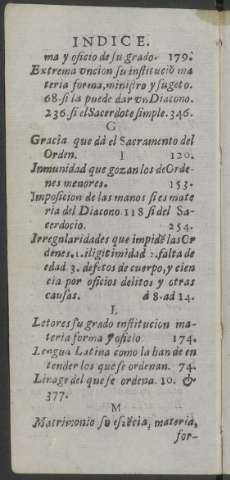 INDICE.
ma y oficio de su grado. 179.
Extrema vncion su instituciõ ma
teria forma, ministro y sugeto.
68. si la puede dar vn Diacono.
236. si el Sacerdote simple. 346.
G
Gracia que dá el Sacramento del
Orden. 120.
I
Inmunidad que gozan los de Orde-
nes menores. 153.
Imposicion de las manos si es mate
ria del Diacono. 118 si del Sa-
cerdocio. 254.
Irregularidades que impidẽ las Or
denes. 1. iligitimidad 2. falta de
edad 3. defetos de cuerpo, y cien
cia por oficios delitos y otras
causas. d 8. ad 14.
L
Letores su grado institucion ma-
teria forma y oficio 174.
Lengua Latina como la han de en
tender los que se ordenan. 74.
Linage del que se ordena. 10. &
377.
M
Matrimonio su esẽcia, materia,
for-